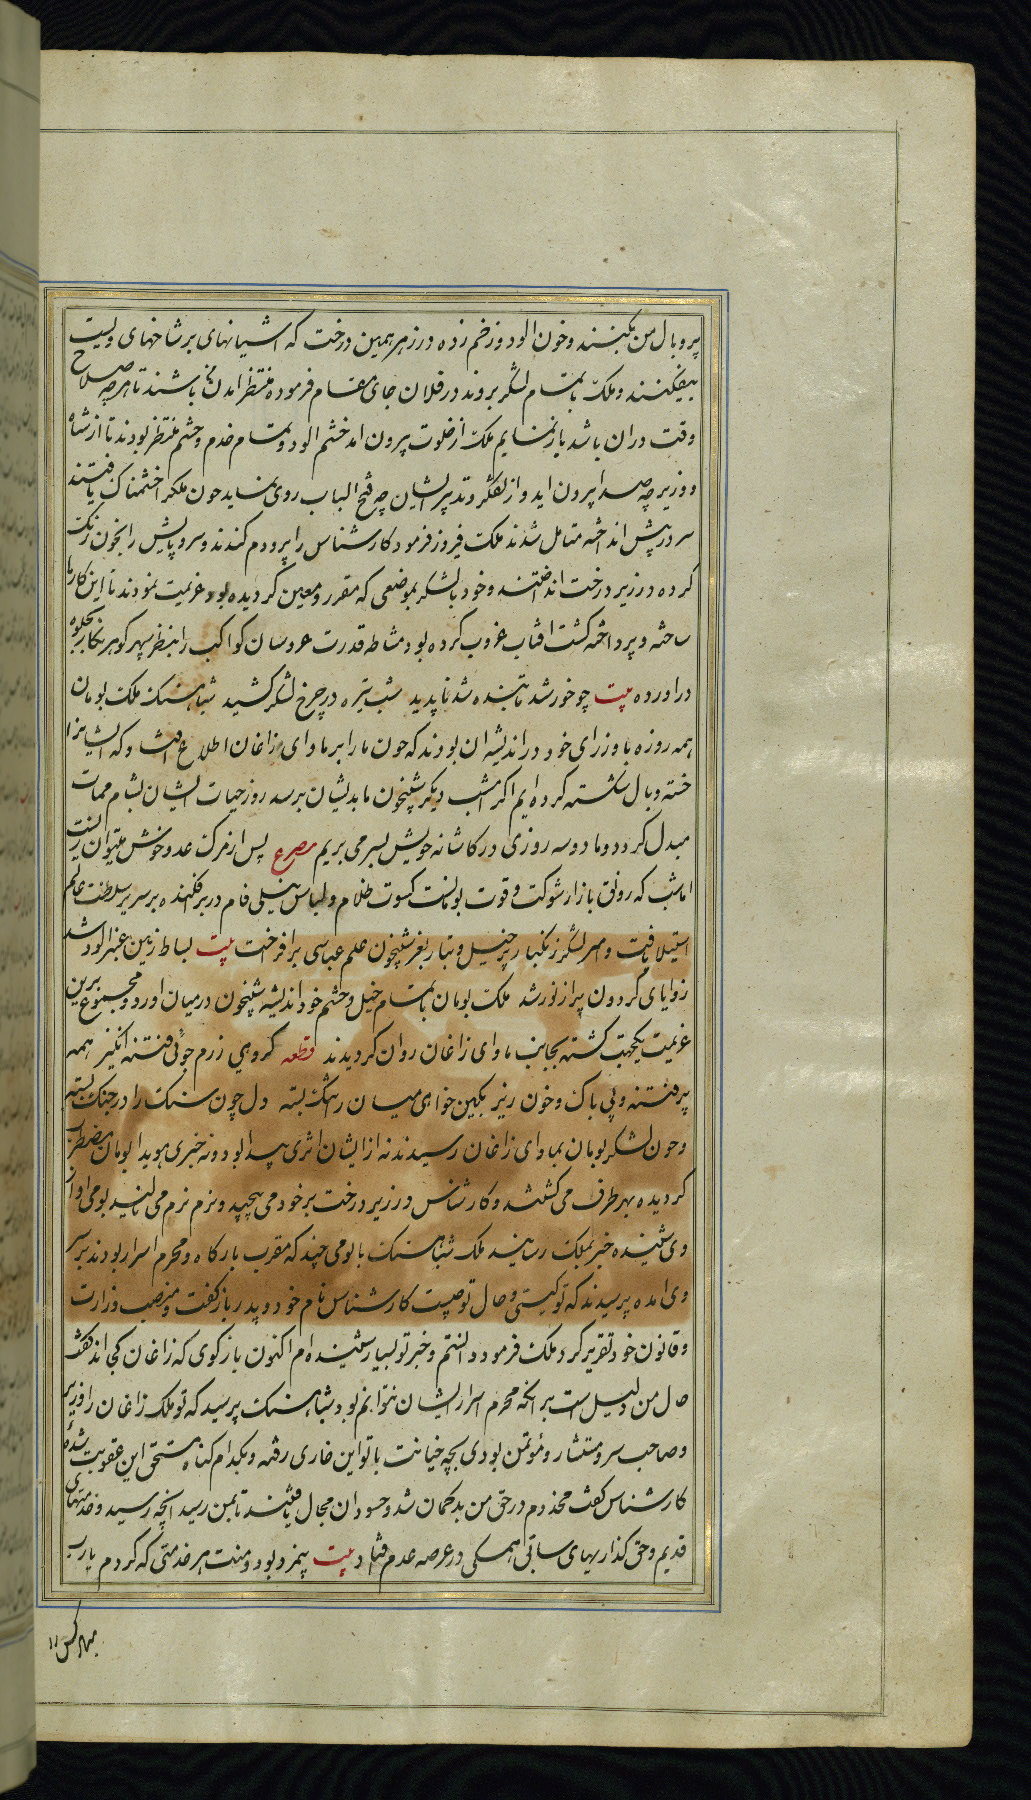 پر و بال من بکنند و خون الود و زخم زده در زیر همین درخت که اشیانهای بر شاخهای ویست
بیفکنند و ملک با تمام لشکر بروند در فلان جای مقام فرموده منتظر امدن باشند تا هرچه صلاح
وقت دران باشد باز نمایم ملک از خلوت بیرون امد خشم الود و تمام خدم و حشم منتظر بودند تا از شاه
و وزیر چه صدا بیرون اید و از تفکر و تدبیر ایشان چه فتح الباب روی نماید چون ملک را خشمناک یافتند
سر در پیش انداخته متامل شدند ملک فیروز فرمود کارشناس را پر و دم کندند و سر و پایش را بخون رنک
کرده در زیر درخت انداختند و خود با لشکر بموضعی که مقرر و معین کردیده بود عزیمت نمودند تا این کارها
ساخته و پرداخته کشت افتاب غروب کرده بود مشاطه قدرت عروسان کواکب را بمنظر سپهر کوهر نکار بجلوه
دراورده بیت چو خورشید تابنده شد ناپدید شب تیره در چرخ لشکر کشید شباهنک ملک بومان
همه روزه با وزرای خود در اندیشه ان بودند که چون ما را بر ماوای زاغان اطلاع افتاد و که ایشانرا
خسته و بال شکسته کرده ایم اکر امشب دیکر شبیخون ما بدیشان برسد روز حیات ایشان بشام ممات
مبدل کردد و ما دو سه روزی در کاشانه خویش بسر می بریم مصرع پس از مرک عدو خوش میتوان زیست
اما شب که رونق بازار شوکت و قوت بومانست کسوت ظلام و لباس نیلی فام در بر فکنده بر سریر سلطنت عالم
استیلا یافت و مهر لشکر زنکبار پر خیل و تبار بعزم شبیخون علم عباسی برافراخت بیت بساط زمین عنبر الود شد
زوایای کردون پر از نور شد ملک بومان با تمام خیل و حشم خود اندیشه شبیخون در میان اورد و مجموع برین
عزیمت یکجهت کشته بجانب ماوای زاغان روان کردیدند قطعه کروهی رزم جوئی فتنه انکیز همه
پر فتنه و بی باک و خون ریز بکین خواهی میان را تنک بسته دل چون سنک را در جنک بسته
و چون لشکر بومان بماوای زاغان رسیدند نه از ایشان اثری پیدا بود و نه خبری هویدا بومان مضطرب
کردیده بهر طرف می کشتند و کارشناس در زیر درخت بر خود می پیچید و نرم نرم می نالید بومی اواز
وی شنیده خبر بملک رسانید ملک شباهنک با بومی چند که مقرب بارکاه و محرم اسرار بودند بر سر
وی امده پرسیدند که تو کیستی و حال تو چیست کارشناس نام خود و پدر باز کفت و منصب وزارت
و قانون خود تقریر کرد ملک فرمود دانستم و خبر تو بسیار شنیده ام اکنون باز کوی که زاغان کجا اند کفت
حال من دلیل است بر انکه محرم اسرار ایشان نتوانم بود شباهنک پرسید که تو ملک زاغان را وزیر
و صاحب سر و مستشار و مؤتمن بودی بچه خیانت با تو این خاری رفته و بکدام کناه مستحق این عقوبت شدهٔ
کارشناس کفت مخدوم در حق من بدکمان شد و حسودان مجال یافتند تا بمن رسید انچه رسید و خدمتهای
قدیم و حق کذاریهای سابق همکی در عرصه عدم فتاد بیت بیمزد بود و منت هر خدمتی که کردم یارب